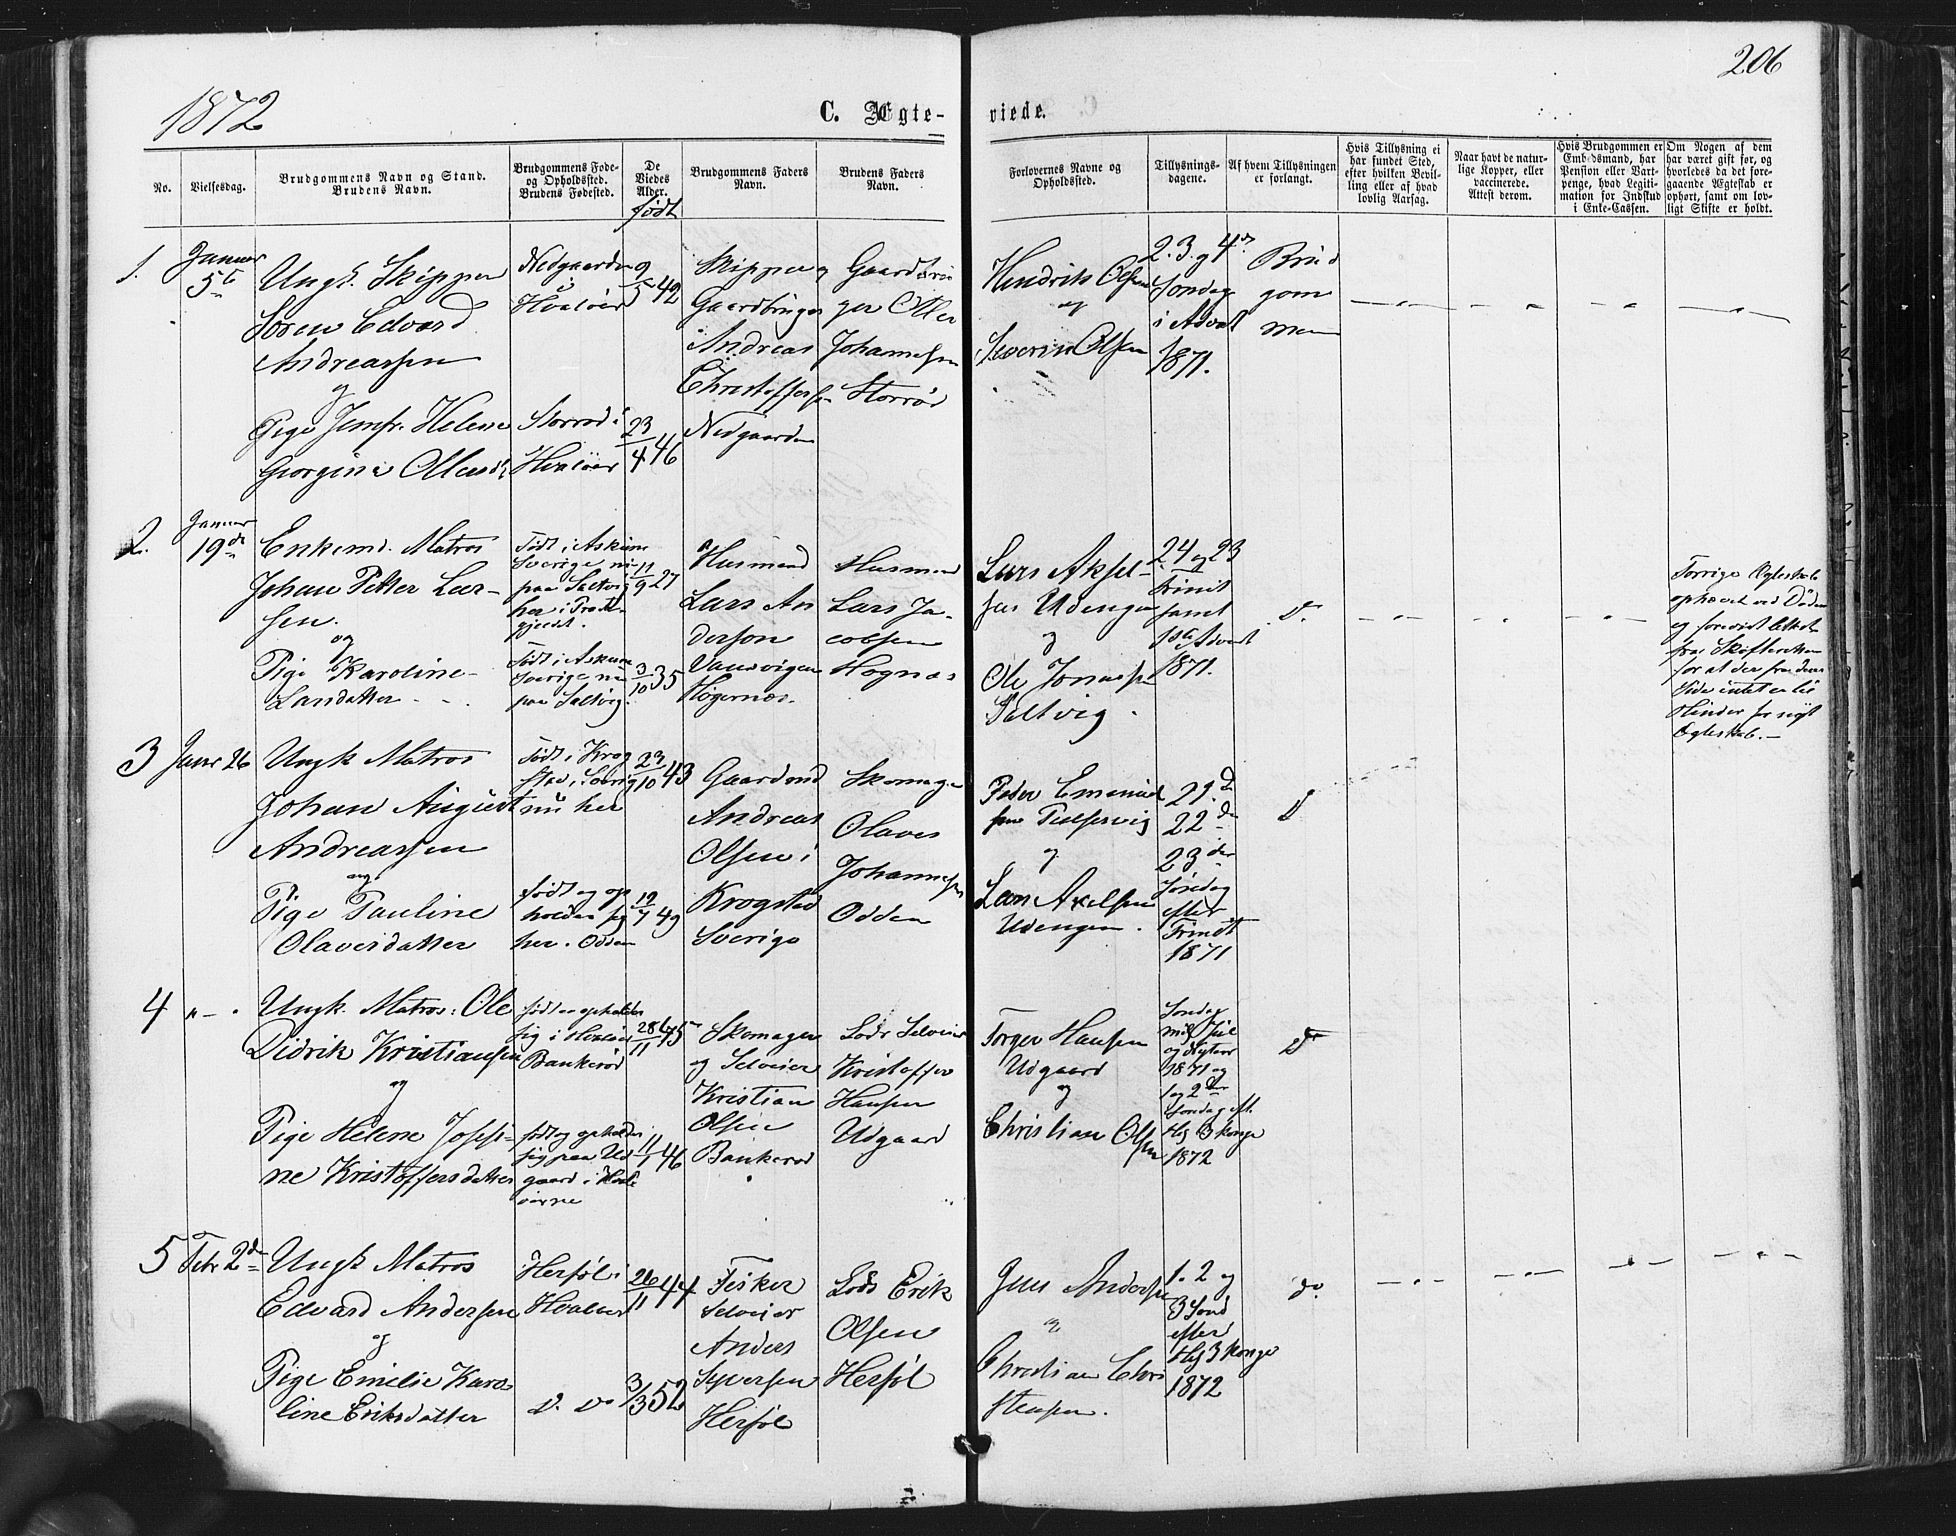 206
1872
C. Ægte-
viede.
No.
Vielsesdag.
Brudgommens Navn og Stand.
Brudens Navn.
Brudgommens Føde-
og Opholdssted.
Brudens Fødested.
De
Viedes
Alder.
født
Brudgommens Faders
Navn.
Brudens Faders
Navn.
Forlovernes Navne og
Opholdssted.
Tillysnings-
dagene.
Af hvem Tillysningen
er forlangt.
Hvis Tillysning ei
har fundet Sted,
efter hvilken Bevil-
ling eller af hvad
lovlig Aarsag.
Naar havt de natur-
lige Kopper, eller
vaccinerede.
Attest derom.
Hvis Brudgommen er
Embedsmand, har
Pension eller Vart-
penge, hvad Legiti-
mation for Indskud
i Enke-Cassen.
Om Nogen af dem
har været gift før, og
hvorledes da det fore-
gaaende Ægteskab er
ophørt, samt om lov-
ligt Skifte er holdt.
1.
Januar
5te
Ungk. Skipper
Søren Edvard
Andreassen
og
Pige Jomfr. Helene
Georgine Olsen
Nedgaarden
i
Hvaløer
Storrød i
Hvaløer
9/5 42
23/4 46
Skipper og
Gaardbruger
Andreas
Christoffersen
Nedgaarden
Gaardbru
ger Oller
Johannesen
Storrød
Hendrik Olsen
og
Severin Olsen
2. 3. og 4de
Søndag
i Advent
1871.
Brud
gom
men
2.
Januar
19de
Enkemd. Matros
Johan Petter Lar-
sen.
og
Pige Karoline
Larsdatter
Født i Askum
Sverige nu
paa Saltvig
her i Præst-
gjeldet.
Født i Askum
Sverige nu
paa Saltvig.
11/9 27
3/10 35
Husmand
Lars An
derson
Høgernæs.
Husmand
Lars Ja-
cobsen
Høgnæs
Lars Aksel-
sen Udengen
og
Ole Jonassen
Saltvig.
24 og 23
Trinit
samt
1ste Advent
1871.
Do.
Forrige Ægteskab
ophævet ved Døden
og forevist Attest
fra Skifteretten
for at der fra denne
Side intet er til
Hinder for nyt
Ægteskab.
3
Janr 26
Ungk Matros
Johan August
Andreassen
og
Pige Pauline
Olavesdatter
Født i Krog
stad i Sverig
nu her
født og op
holder sig
her. Odden
23/10 43
19/7 49
Gaardmd
Andreas
Olsen i
Krogstad
Sverige
Skomager
Olaves
Johannesen
Odden
Peder Emanuel
sen
og
Lars Axelsen
Udengen.
21de
22de
23de
Søndag
efter
Trindt
1871
Do
4
Ungk. Matros: Ole
Didrik Kristiansen
og
Pige Helene Josefi-
ne Kristoffersdatter
født og opholder
sig i Hvaløer
Bankerød
født og opholder
sig paa Ud
gaard i Hval
øerne
28/11 45
11/1 46
Skomager
og Selveier
Kristian
Olsen
Bankerød
Lods Selveier
Kristoffer
Hansen
Udgaard
Torger Hansen
Udgaard
og
Christian Olsen
Søndag
mel Jul
og Nytaar
1871 og
1 og 2den
Søndag eft.
Hel 3 Konge
1872
Do
5
Febr 2de
Ungk Matros
Edvard Andersen
og
Pige Emilie Karo
line Eriksdatter
Herføl i
Hvaløer
do. do
26/11 44
3/3 52
Fisker
Selveier
Anders
Syversen
Herføl
Lods Erik
Olsen
Herføl
Jens Andersen
og
Christian Chri
stensen.
1. 2 og
3 Sønd
efter
Hel 3 Konge
1872
do.